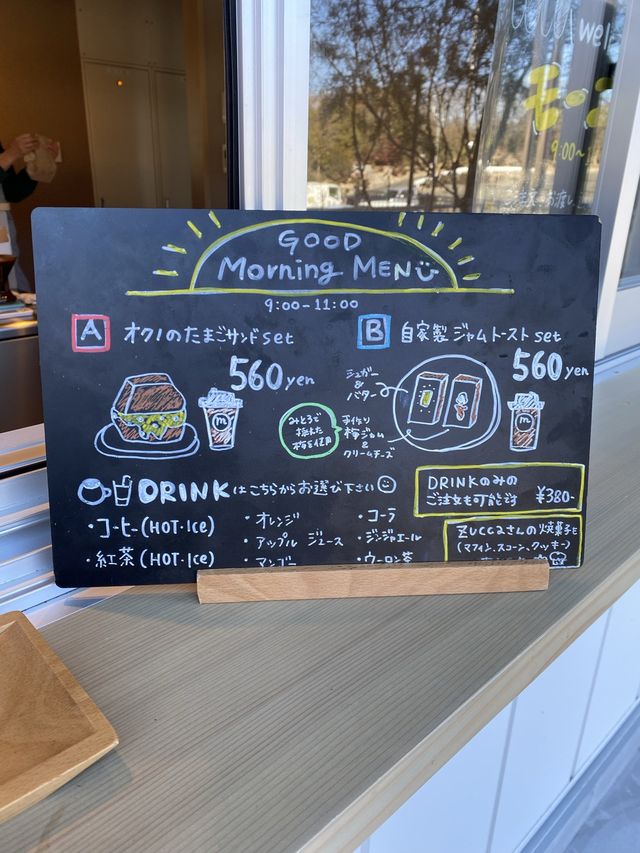 wel
モー
9:00~
ご注文・お渡し
GOOD
Morning MENU
9:00-11:00
A オクノのたまごサンドset
560yen
m
B 自家製ジャムトーストset
560yen
シュガー
&
バター
みとろで
採れた
梅を使用
手作り
梅ジャム
&
クリームチーズ
m
DRINKはこちらからお選び下さい
・コーヒー(HOT・Ice)
・紅茶(HOT・Ice)
・オレンジ
・アップル ジュース
・マンゴー
・コーラ
・ジンジャエール
・ウーロン茶
DRINKのみの
ご注文も可能です ¥380-
ZUCCaさんの焼菓子も
(マフィン、スコーン、クッキー)